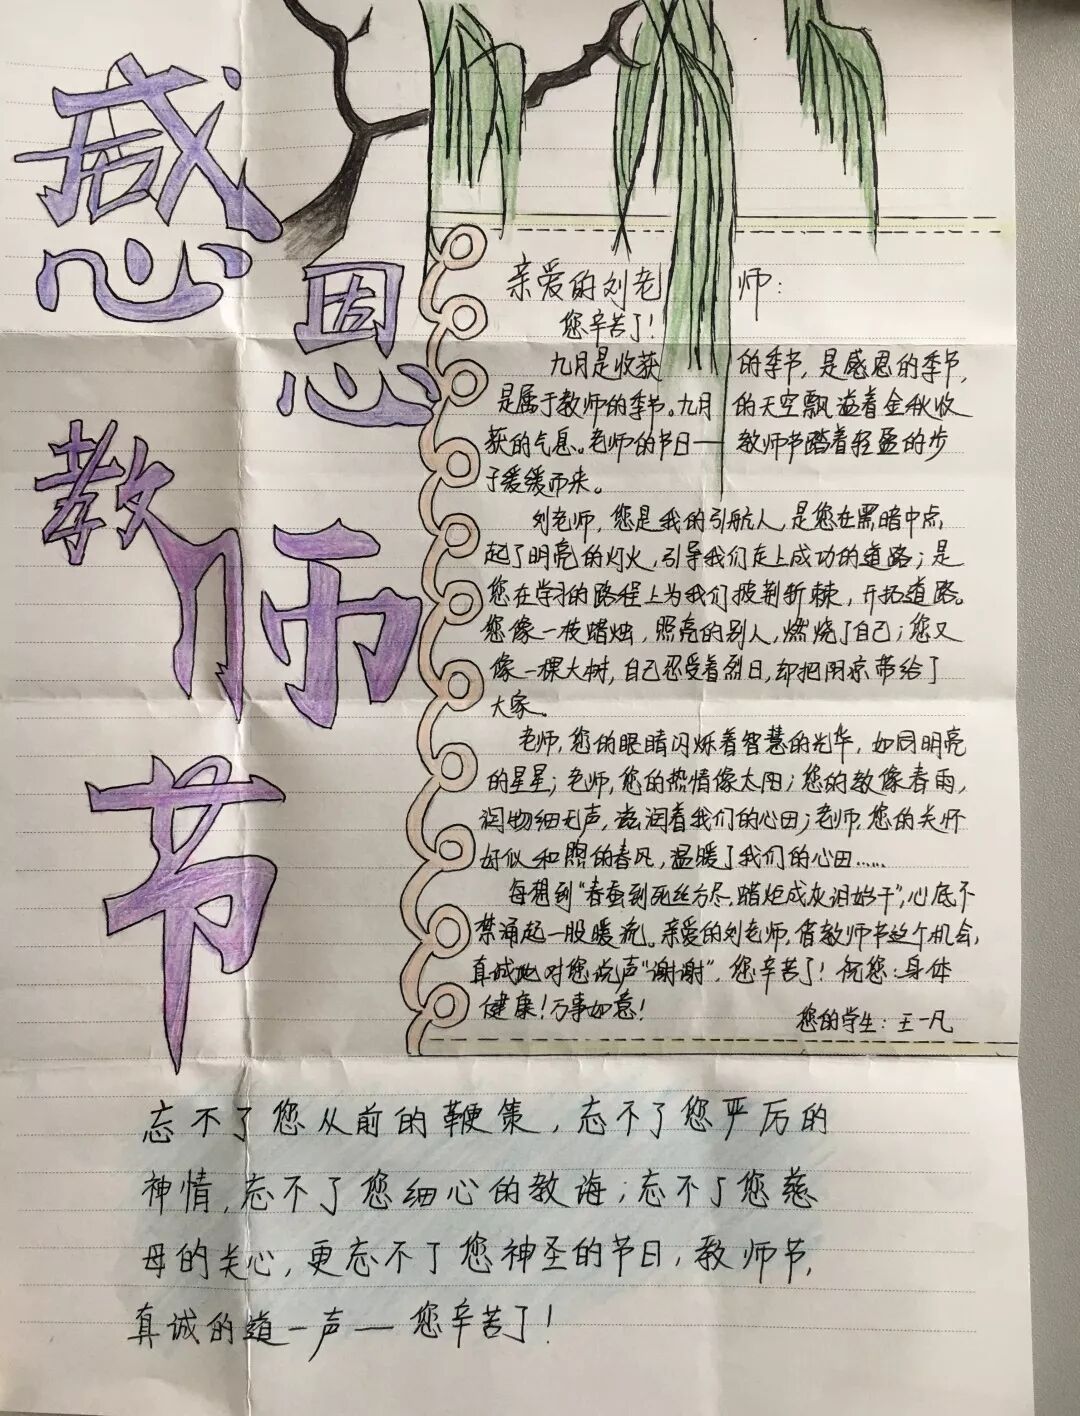 感恩教师节
亲爱的刘老师：
您辛苦了！
九月是收获的季节，是感恩的季节，
是属于教师的季节。九月的天空飘溢着金秋收
获的气息。老师的节日——教师节踏着轻盈的步
子缓缓而来。
刘老师，您是我的引航人，是您在黑暗中点
起了明亮的灯火，引导我们走上成功的道路；是
您在学习的路程上为我们披荆斩棘，开拓道路。
您像一枝蜡烛，照亮的别人，燃烧了自己；您又
像一棵大树，自己忍受着烈日，却把阴凉带给了
大家。
老师，您的眼睛闪烁着智慧的光华，如同明亮
的星星；老师，您的热情像太阳；您的教像春雨，
润物细无声，滋润着我们的心田；老师，您的关怀
好似和煦的春风，温暖了我们的心田……
每想到“春蚕到死丝方尽，蜡炬成灰泪始干”，心底不
禁涌起一股暖流。亲爱的刘老师，借教师节这个机会，
真诚地对您说声“谢谢”，您辛苦了！祝您：身体
健康！万事如意！
您的学生：王一凡
忘不了您从前的鞭策，忘不了您严厉的
神情，忘不了您细心的教诲；忘不了您慈
母的关心，更忘不了您神圣的节日，教师节，
真诚的道一声—您辛苦了！